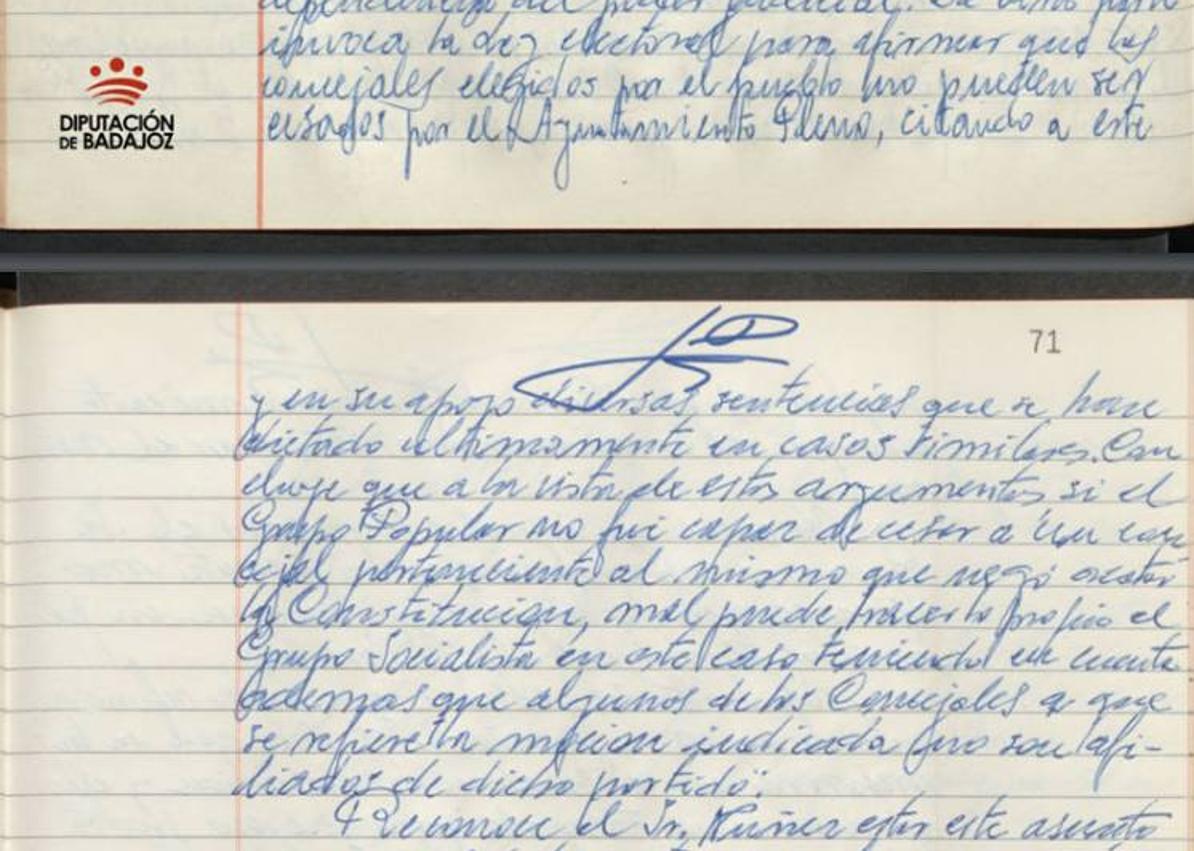 dependencia del poder judicial. De otra parte
invoca la Ley electoral para afirmar que los
concejales elegidos por el pueblo no pueden ser
cesados por el Ayuntamiento Pleno, citando a este
DIPUTACIÓN
DE BADAJOZ
71
y en su apoyo diversas sentencias que se han
dictado ultimamente en casos similares. Con
cluye que a la vista de estos argumentos si el
Grupo Popular no fue capaz de cesar a un con
cejal perteneciente al mismo que negó acatar
la Constitucion, mal puede hacerlo el
Grupo Socialista en este caso teniendo en cuenta
ademas que algunos de los Concejales a que
se refiere la mocion indicada no son afi-
liados de dicho partido".
Reconoce el Sr. Nuñez este asunto